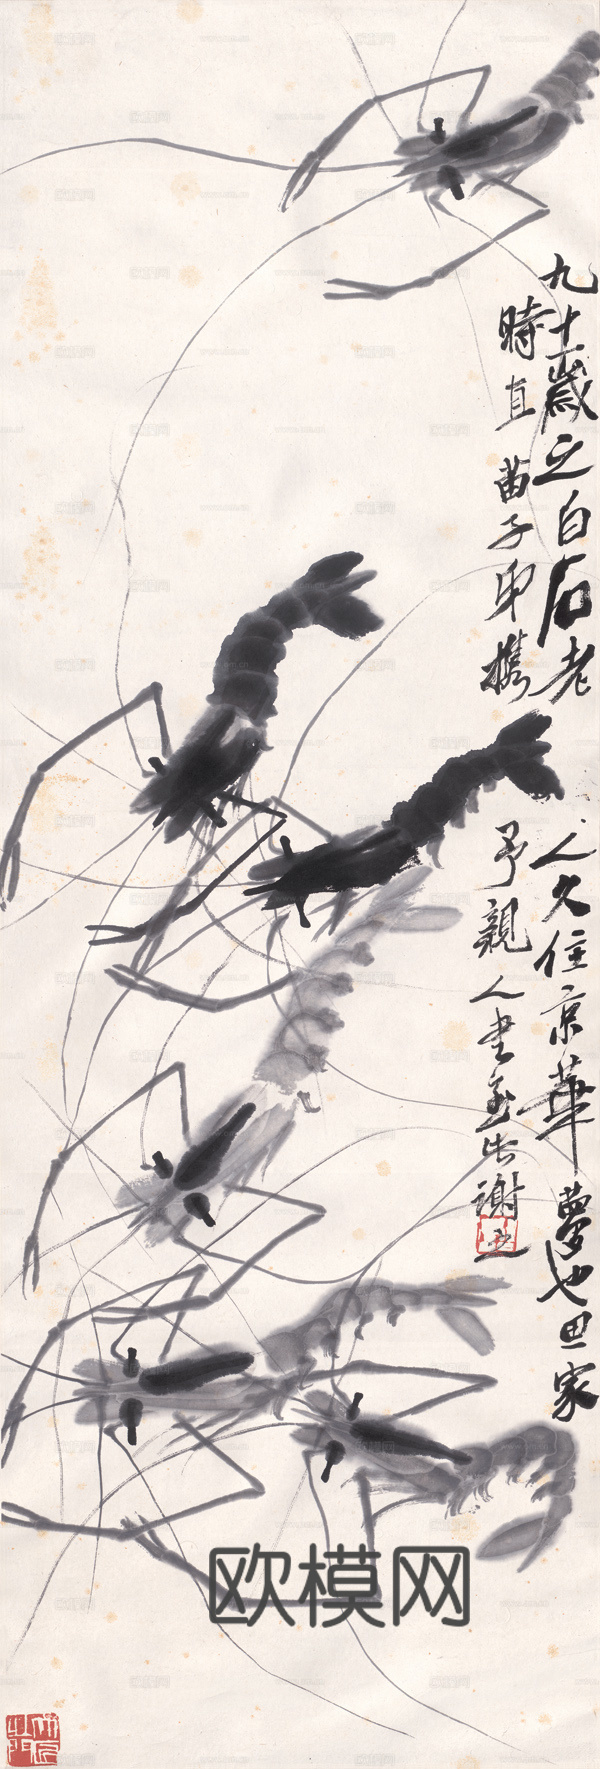 九十一歲之白石老人久住京華夢也思家
時直苗子携予親人書至謝之
大匠之門
欧模网